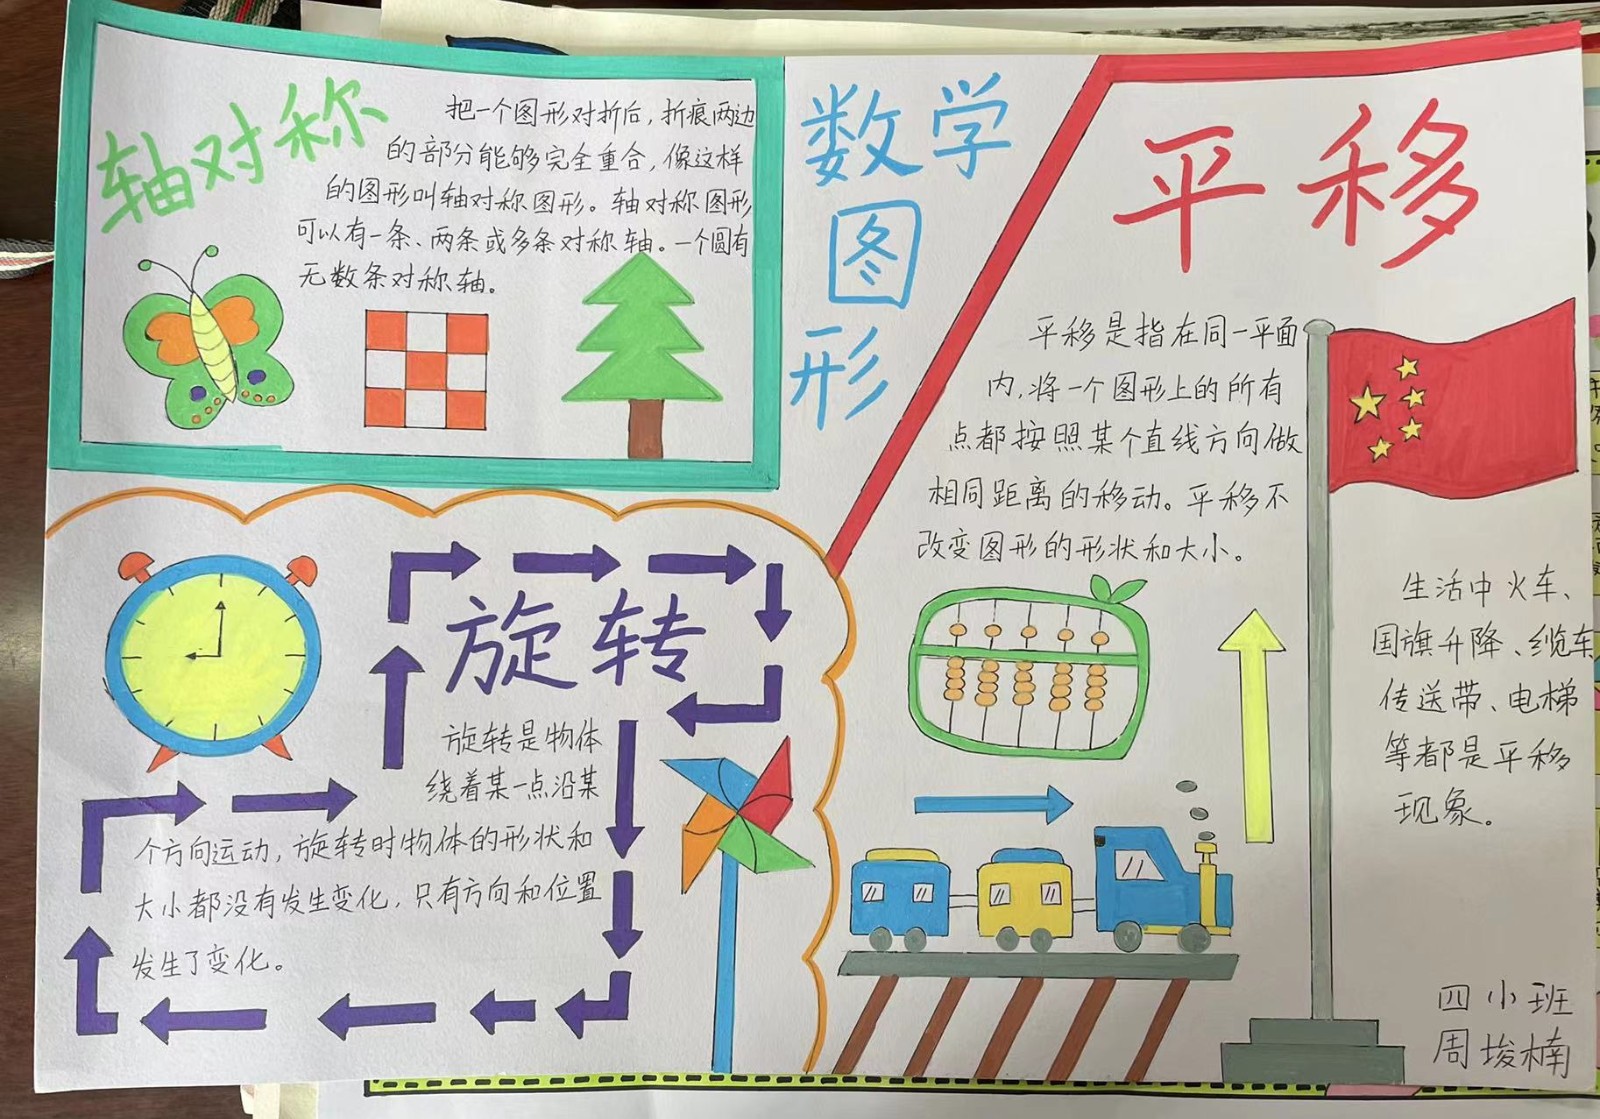 数学
图
形
轴对称
把一个图形对折后,折痕两边
的部分能够完全重合,像这样
的图形叫轴对称图形。轴对称图形
可以有一条、两条或多条对称轴。一个圆有
无数条对称轴。
平移
平移是指在同一平面
内,将一个图形上的所有
点都按照某个直线方向做
相同距离的移动。平移不
改变图形的形状和大小。
生活中火车、
国旗升降、缆车
传送带、电梯
等都是平移
现象。
旋转
旋转是物体
绕着某一点沿某
个方向运动,旋转时物体的形状和
大小都没有发生变化,只有方向和位置
发生了变化。
四小班
周埈楠